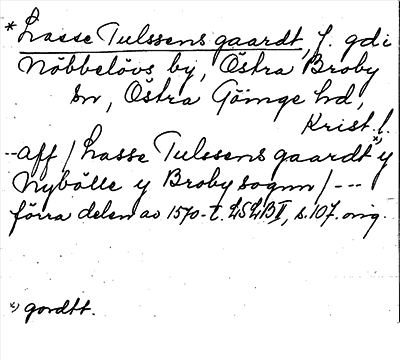 *Lasse Tulssens gaardt, f. gd i
Nöbbelövs by, Östra Broby
sn, Östra Göinge hd,
Krist. l.
--aff / Lasse Tulssens gaardt *) y
Nybölle y Broby sognn / ---
förra delen av 1570-t. LSLB II, s. 107. orig.
*) gordtt.